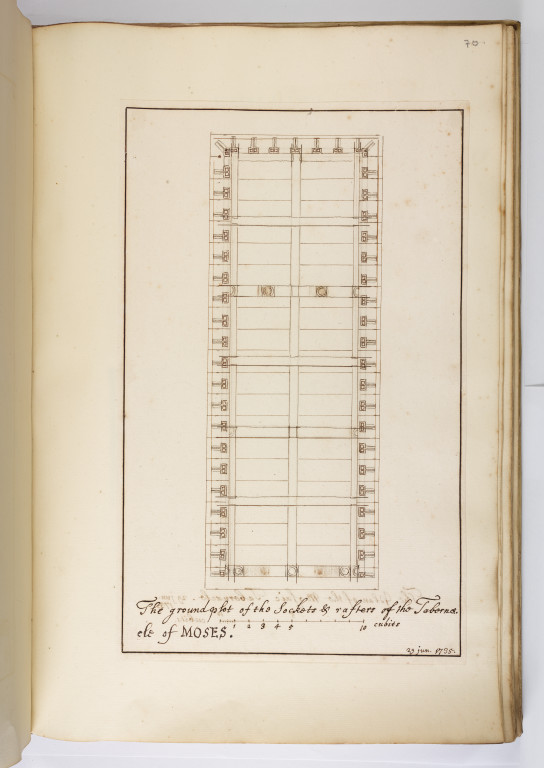 70.
The ground plot of the Sockets & rafters of the Tabernac
cle of MOSES.
1 2 3 4 5 10 cubits
27 jun. 1735.